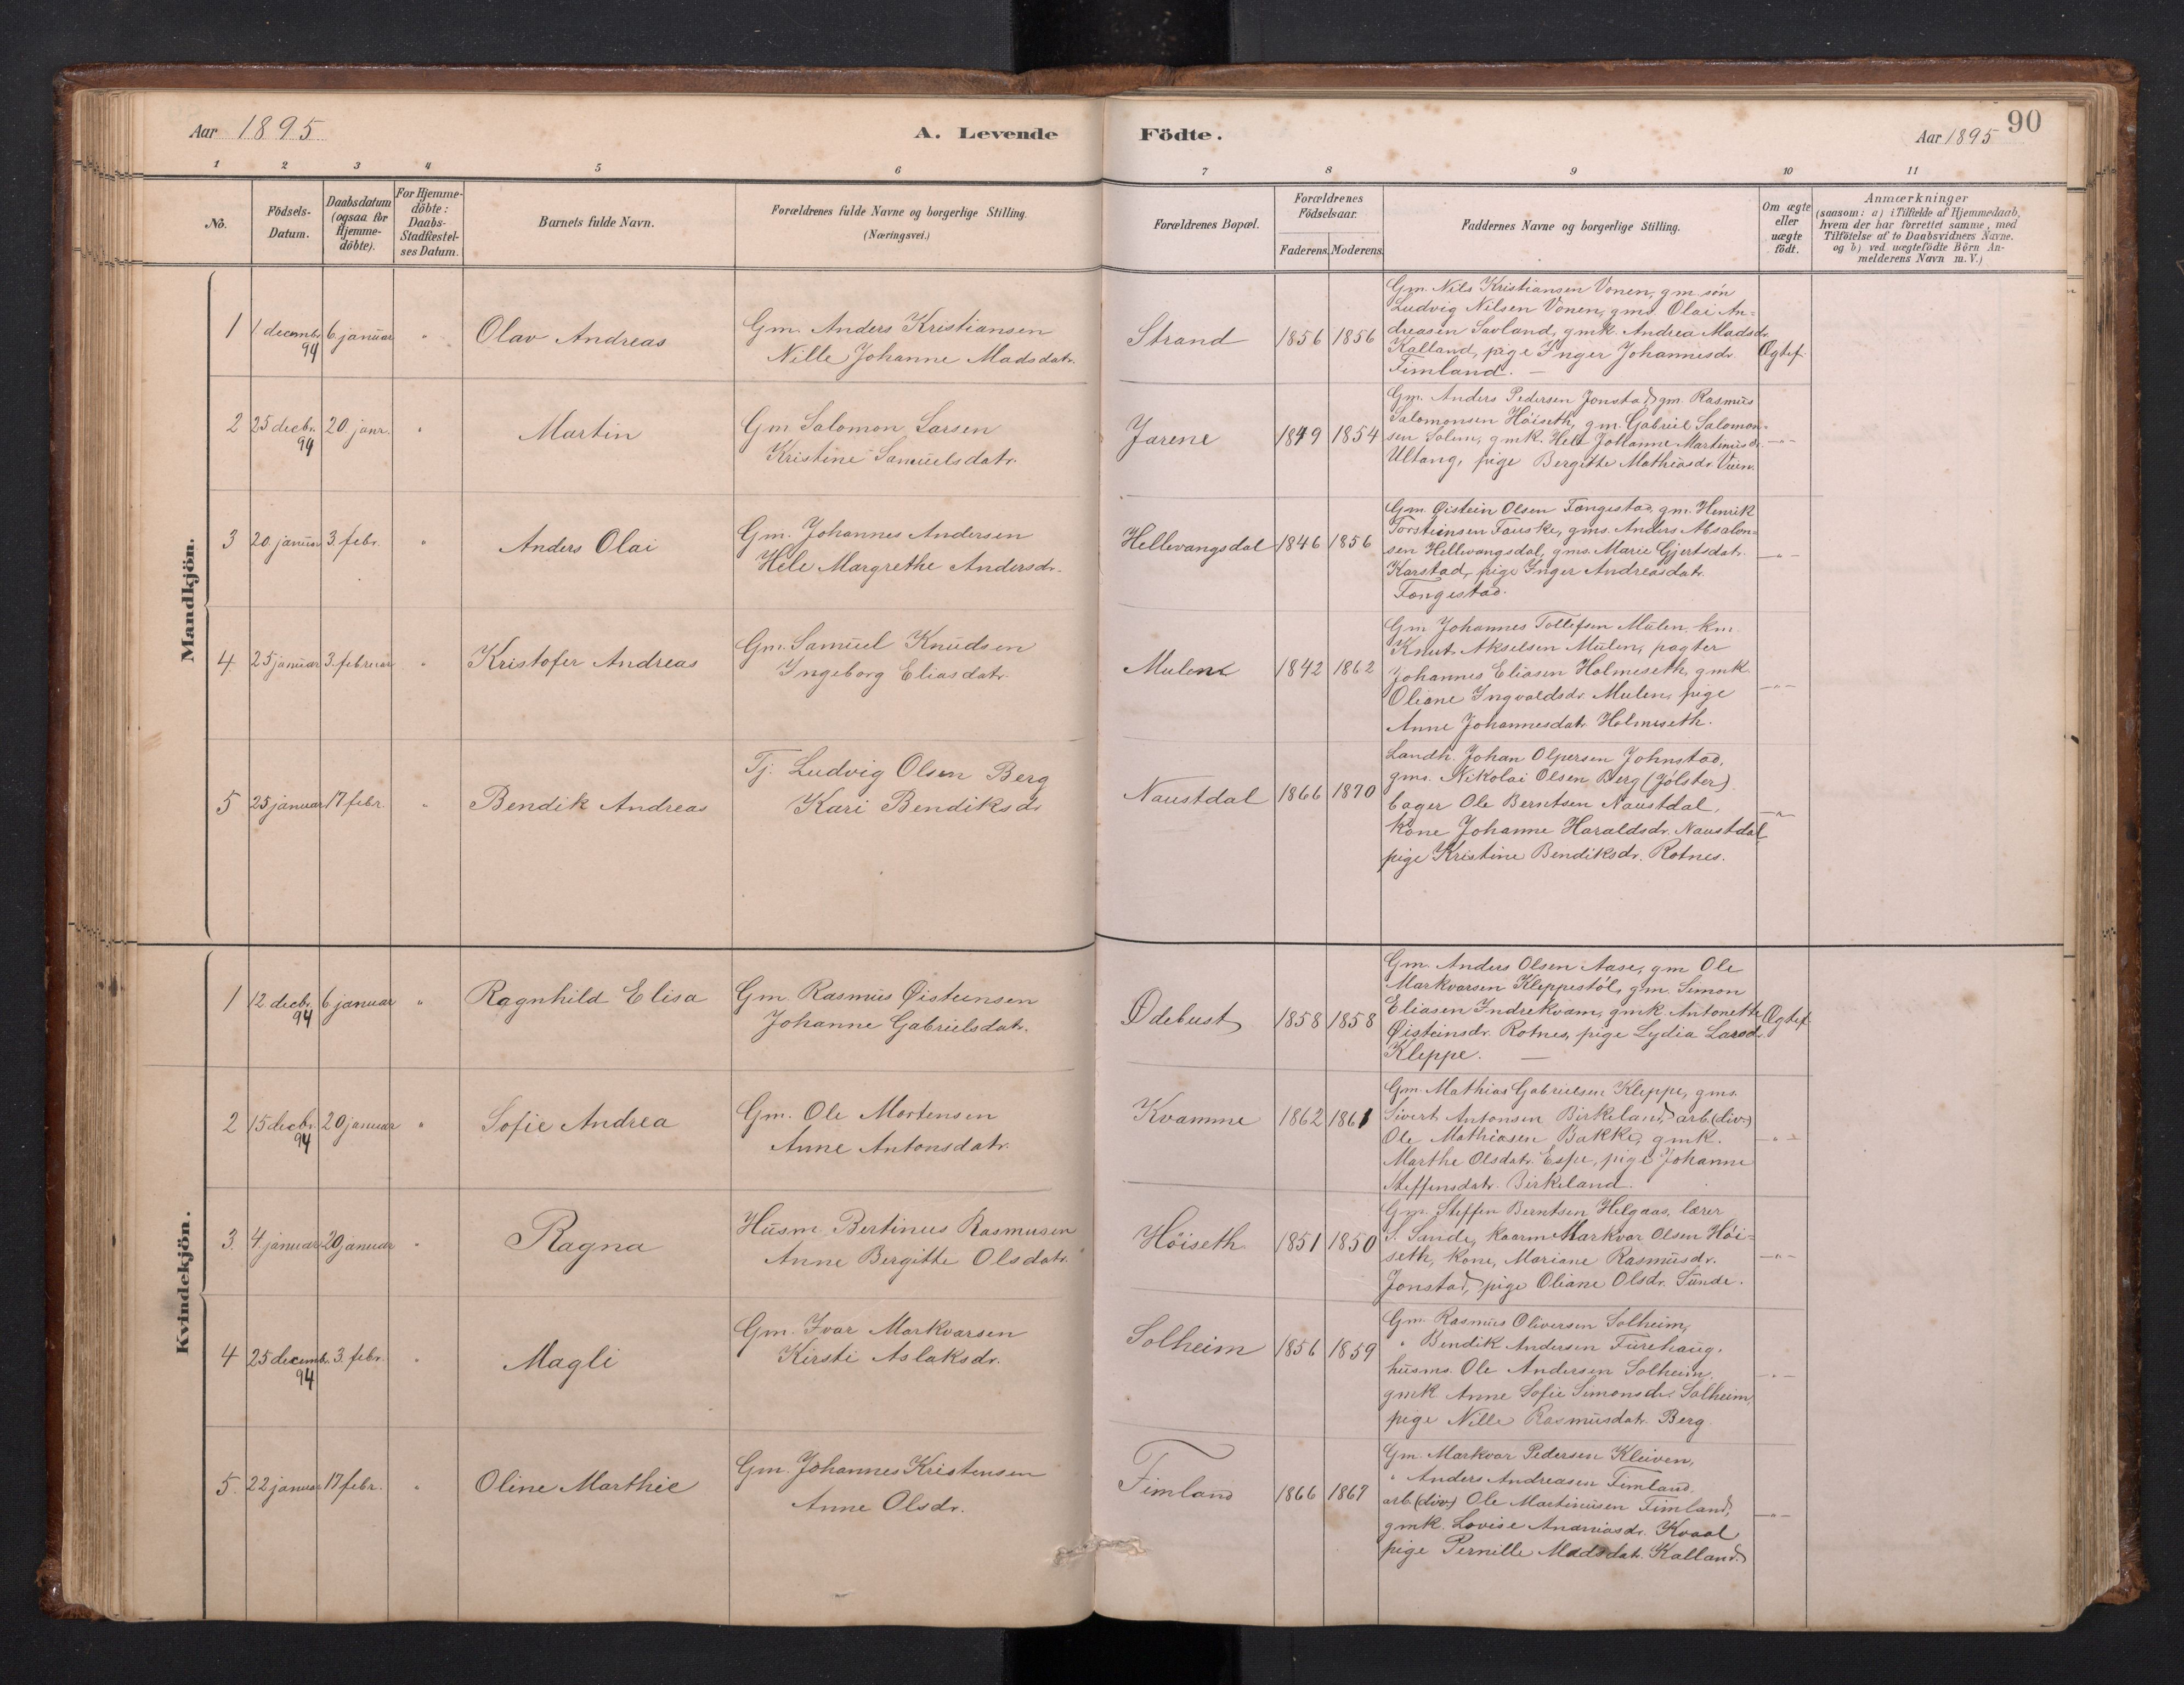 90
Aar 1895
A. Levende Födte.
Aar 1895
1 2 3 4 5 6 7 8 9 10 11
No.
Födsels-
Datum.
Daabsdatum
(ogsaa for
Hjemme-
döbte).
For Hjemme-
döbte:
Daabs-
Stadfæstel-
ses Datum.
Barnets fulde Navn.
Forældrenes fulde Navne og borgerlige Stilling.
(Næringsvei.)
Forældrenes Bopæl.
Forældrenes
Födselsaar.
Faderens. Moderens.
Faddernes Navne og borgerlige Stilling.
Om ægte
eller
uægte
födt.
Anmærkninger
(saasom: a) i Tilfælde af Hjemmedaab,
hvem der har forrettet samme, med
Tilföielse af to Daabsvidners Navne.
og b) ved uægtefödte Börn An-
melderens Navn m. V.)
Mandkjön.
1 1 decembr. 94 6 januar " Olav Andreas
Gm. Anders Kristiansen
Nille Johanne Madsdatr.
Strand 1856 1856
Gm. Nils Kristiansen Vonen, gm. søn
Ludvig Nilsen Vonen, gms. Olai An-
dreasen Savland, gmk. Andrea Madsdr.
Kalland, pige Inger Johannesdr.
Timland. —
Ægtef.
2 25 decbr. 94 20. janr. " Martin
Gm Salomon Larsen
Kristine Samuelsdatr.
Jarene 1849 1854
Gm. Anders Pedersen Jonstad, gm. Rasmus
Salomonsen Höiseth, gm. Gabriel Salomon-
sen Solem, gmk. Hele Johanne Martinusdr.
Ultang, pige Bergitte Mathiasdr. Veien.
—"—
3 20. januar 3. febr. " Anders Olai
Gm. Johannes Andersen
Hele Margrethe Andersdr.
Hellevangsdal 1846 1856
Gm. Øistein Olsen Fongestad, gm. Henrik
Torsteinsen Fauske, gms. Anders Absalon-
sen Hellevangsdal, gms. Marie Gjertsdatr.
Karstad, pige Inger Andreasdatr.
Fongestad.
—"—
4. 25 januar 3. februar " Kristofer Andreas
Gm. Samuel Knudsen
Ingeborg Eliasdatr.
Mulen 1842 1862
Gm. Johannes Tollefsen Mulen, km.
Knut Akselsen Mulen, pagter
Johannes Eliasen Holmeseth, gmk.
Oliane Ingvaldsdr. Mulen, pige
Anne Johannesdatr. Holmeseth.
—"—
5 25 januar 17 febr. " Bendik Andreas
Tj. Ludvig Olsen Berg
Kari Bendiksdr
Naustdal 1866 1870
Landh. Johan Olpersen Johnstad,
gms. Nikolai Olsen Berg (Jølster)
bager Ole Berntsen Naustdal,
kone Johanne Haraldsdr. Naustdal,
pige Kristine Bendiksdr. Rotnes.
—"—
Kvindekjön.
1 12 decbr. 94 6 januar " Ragnhild Elisa
Gm. Rasmus Øisteinsen
Johanne Gabrielsdatr.
Ødebust 1858 1858
Gm. Anders Olsen Aase, gm Ole
Markvarsen Kleppestöl, gm. Simon
Eliasen Indrekvam, gmk. Antonette
Øisteinsdr. Rotnes, pige Lydia Larsdr.
Kleppe. —
Ægtef.
2 15 decbr. 94 20 januar " Sofie Andrea
Gm. Ole Mortensen
Anne Antonsdatr.
Kvamme 1862 1861
Gm. Mathias Gabrielsen Kleppe, gms.
Sivert Antonsen Birkeland, arb. (div.)
Ole Mathiasen Bakke, gmk.
Marthe Olsdatr. Espe, pige Johanne
Steffensdatr. Birkeland.
—"—
3. 4. januar 20 januar " Ragna
Husm Bertinus Rasmusen
Anne Bergitte Olsdatr.
Höiseth 1851 1850
Gm. Steffen Berntsen Helgaas, lærer
S. Sande, kaarm Markvar Olsen Höi-
seth, kone, Mariane Rasmusdr.
Jonstad, pige Oliane Olsdr. Sunde.
—"—
4 25 decemb. 94 3. febr. " Magli
Gm. Ivar Markvarsen
Kirsti Aslaksdr.
Solheim 1856 1859
Gm. Rasmus Oliversen Solheim,
" Bendik Andersen Furehaug.
husms. Ole Andersen Solheim,
gmk Anne Sofie Simonsdr. Solheim,
pige Nille Rasmusdatr. Berg.
—"—
5. 22 januar 17 febr. " Oline Marthie
Gm. Johannes Kristensen
Anne Olsdr.
Timland 1866 1867
Gm. Markvar Pedersen Kleiven,
" Anders Andreasen Timland.
arb. (div.) Ole Martinusen Timland,
gmk. Lovise Ananiasdr. Kvaal
pige Pernille Madsdatr. Kalland.
—"—